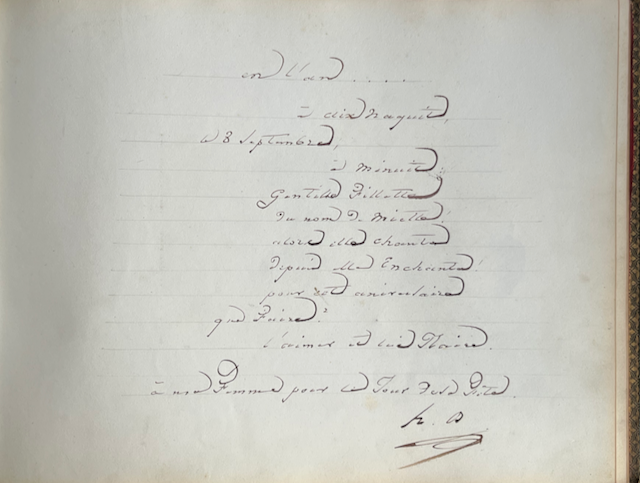 en l'an ....
à aix naquit,
le 8 Septembre,
à minuit
Gentille Fillette
du nom de Miette!
alors elle chanta
depuis elle Enchante!
pour cet aniversaire
que Faire?
l'aimer et lui Plaire.
à ma Femme pour le Jour de sa Fête.
h. D